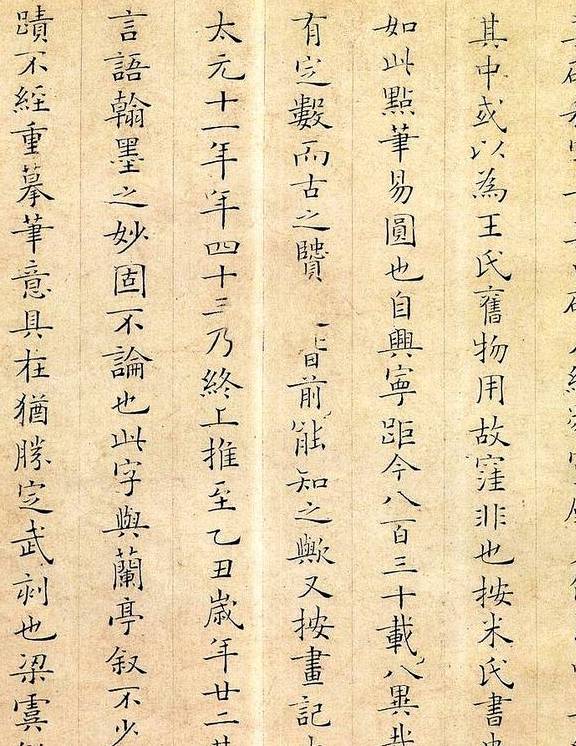 其中或以為王氏舊物用故窪非也按米氏書
如此點筆易圓也自興寧距今八百三十載八異哉
有定數而古之賢 前能知之歟又按畫記
太元十一年年四十三乃終上推至乙丑歲年廿二其
言語翰墨之妙固不論也此字與蘭亭叙不少
蹟不經重摹筆意具在猶勝定武刻也梁虞